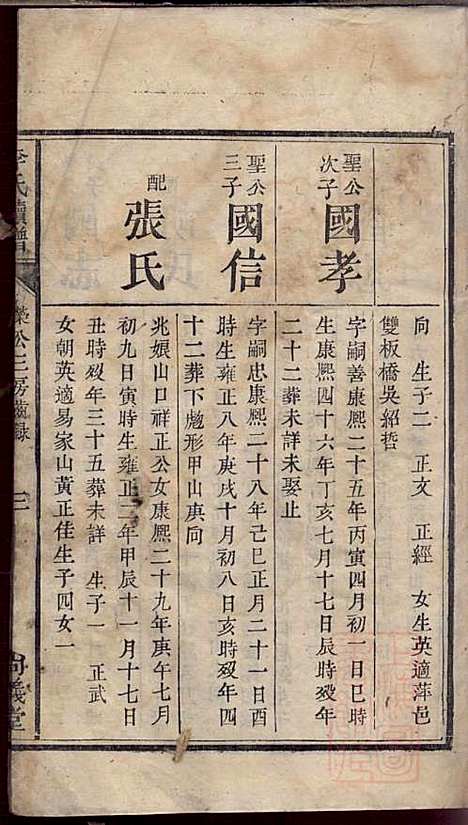 向 生子二 正文 正經 女生英適萍邑
雙板橋吳紹哲
聖公
次子
國孝
字嗣善康熙二十五年丙寅四月初一日巳時
生康熙四十六年丁亥七月十七日辰時歿年
二十二葬未詳未娶止
聖公
三子
國信
字嗣忠康熙二十八年己巳正月二十一日酉
時生雍正八年庚戌十月初八日亥時歿年四
十二葬下彪形甲山庚向
配
張氏
兆娘山口祥正公女康熙二十九年庚午七月
初九日寅時生雍正二年甲辰十一月十七日
丑時歿年三十五葬未詳 生子一 正武
女朝英適易家山黃正佳生子四女一
李氏續譜
榮公三房齒錄
尚義堂